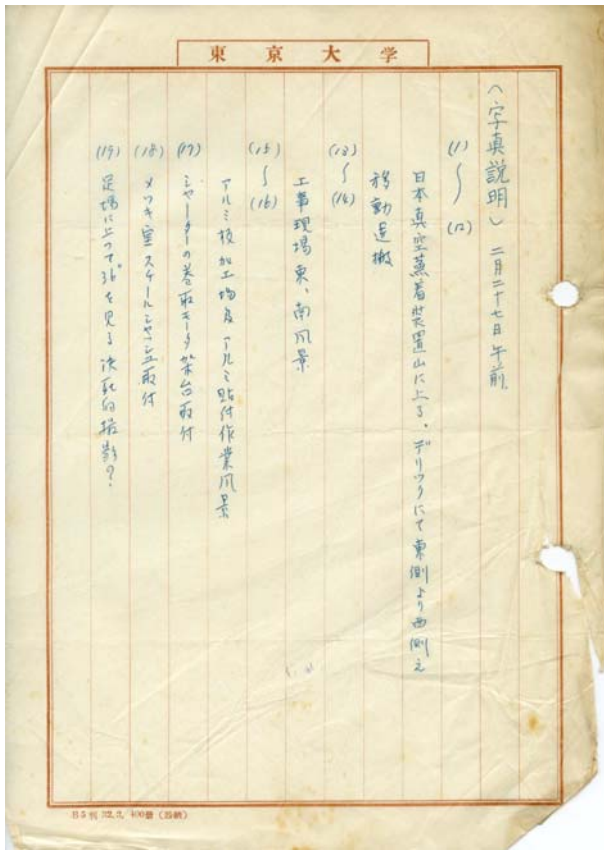 東京大学
(写真説明) 二月二十七日午前、
(1)〜(12)
日本真空蒸着装置山に上る。デリックにて東側より西側え
移動運搬
(13)〜(14)
工事現場東、南風景
(15)〜(16)
アルミ板加工場及アルミ貼付作業風景
(17) シャーターの巻取モータ架台取付
(18) メッキ室スチールシャッシュ取付
(19) 足場に上って36"を見る 決死的撮影?
B5判 32.3. 400冊